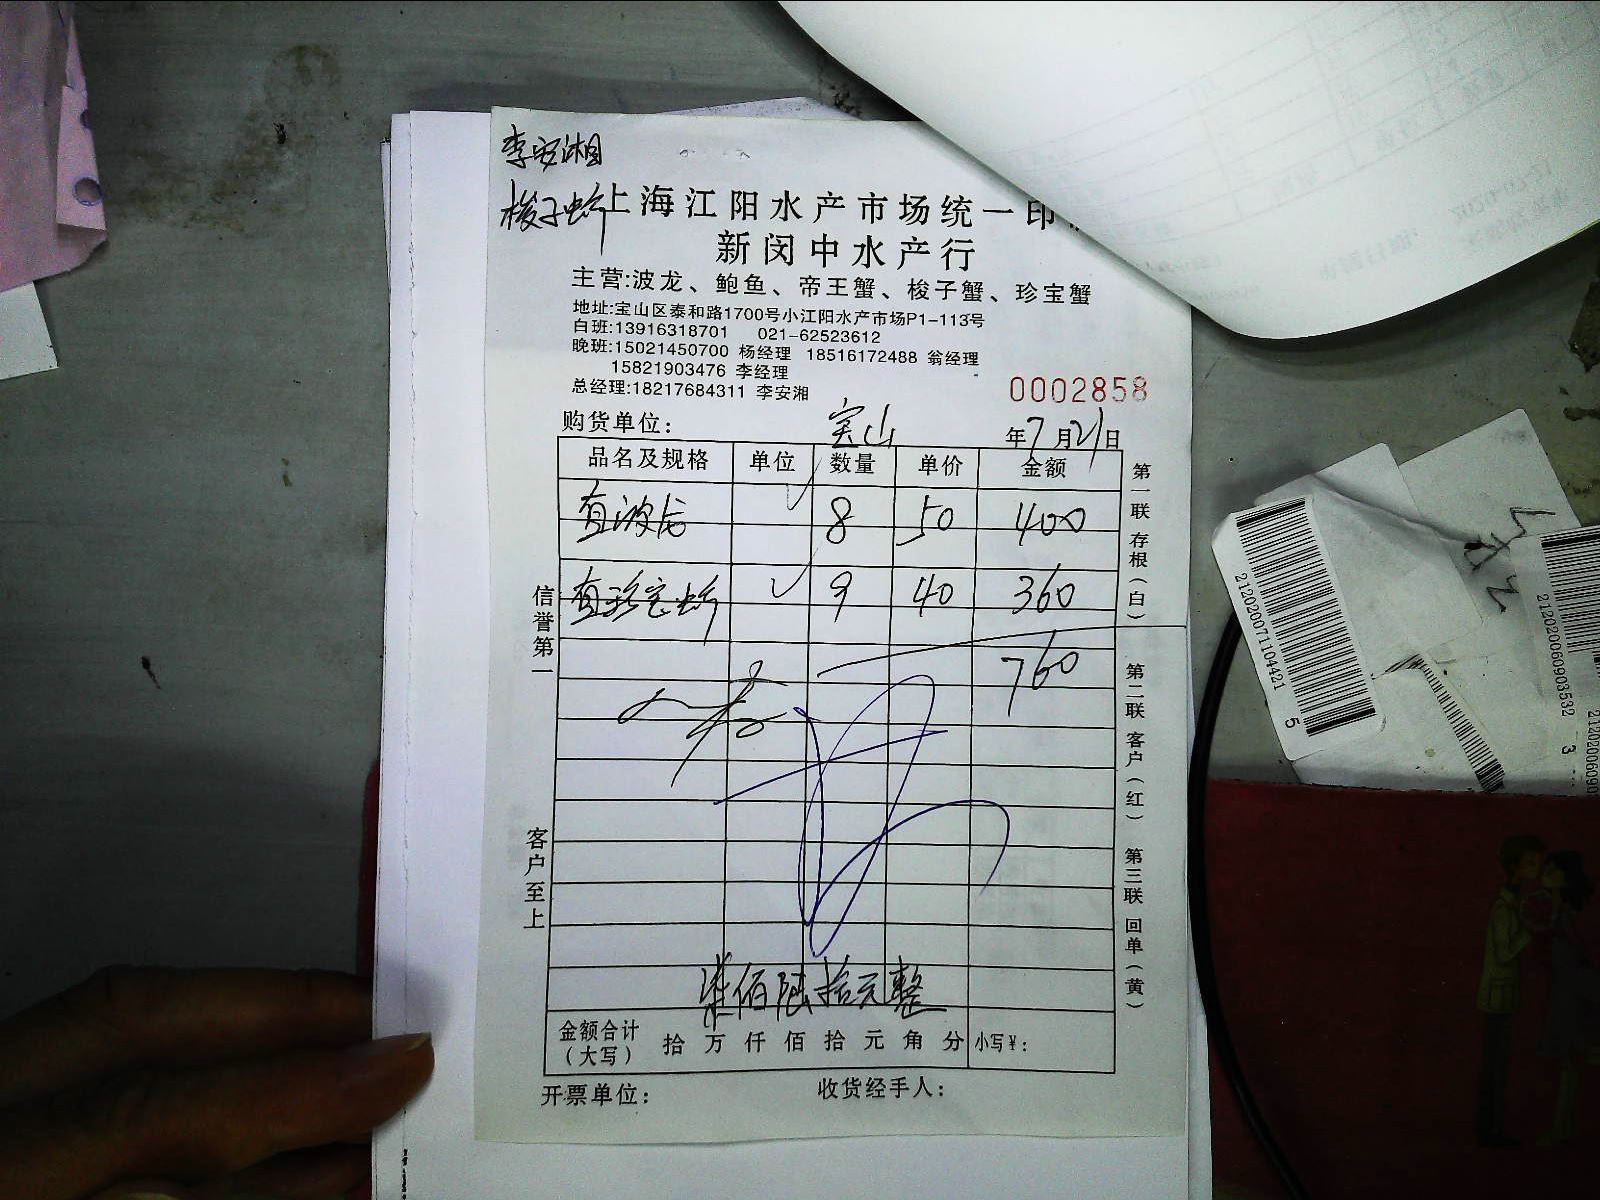 李安湘
梭子蚧
上海江阳水产市场统一印
新闵中水产行
主营:波龙、鲍鱼、帝王蟹、梭子蟹、珍宝蟹
地址:宝山区泰和路1700号小江阳水产市场P1-113号
白班:13916318701 021-62523612
晚班:15021450700 杨经理 18516172488 翁经理
15821903476 李经理
总经理:18217684311 李安湘
0002858
购货单位: 宝山 年7月21日
品名及规格 单位 数量 单价 金额
直波龙 8 50 400
直珍宝蚧 9 40 360
760
柒佰陆拾元整
金额合计(大写) 拾 万 仟 佰 拾 元 角 分 小写¥:
开票单位: 收货经手人:
信誉第一
客户至上
第一联 存根(白)
第二联 客户(红)
第三联 回单(黄)
2120200711044215
21202006090353